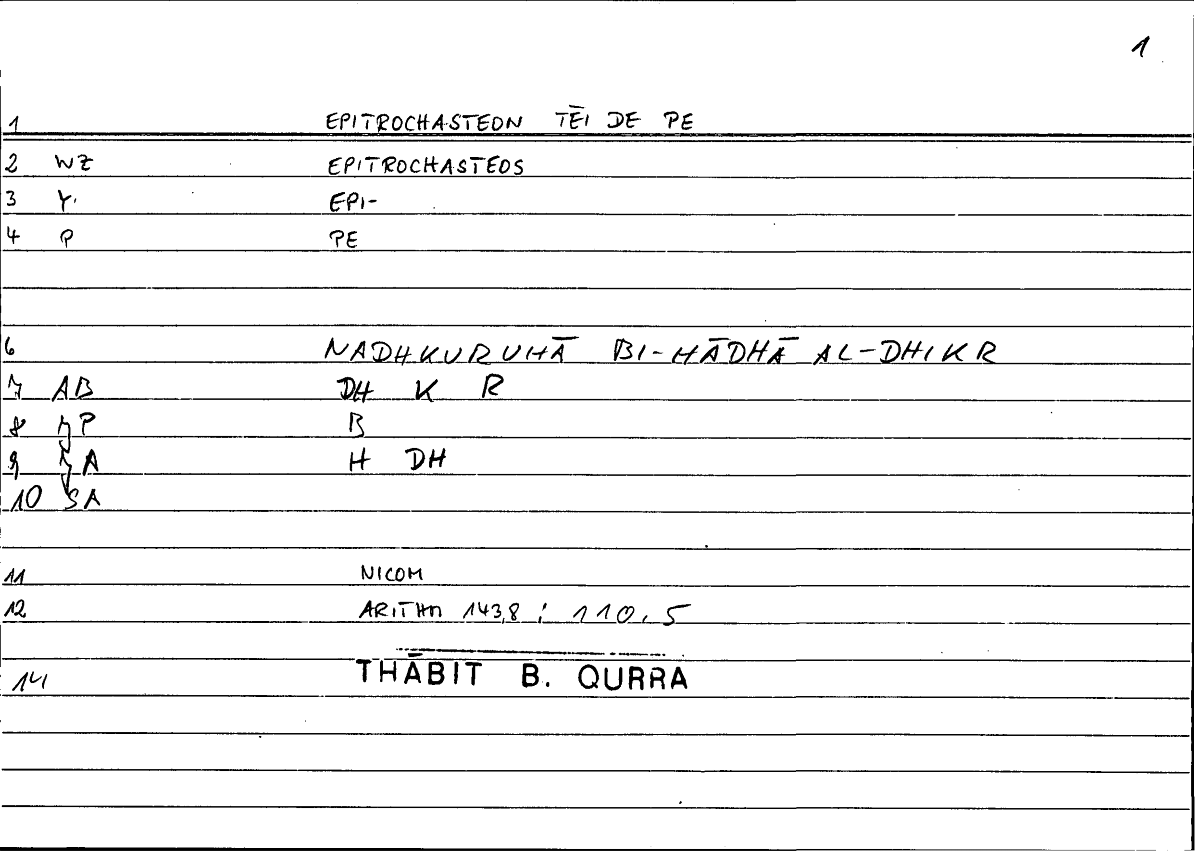 1
1 EPITROCHASTEON TĒI DE PE
2 WZ EPITROCHASTEOS
3 Y. EPI-
4 P PE
6 NADHKURUHĀ BI-HĀDHĀ AL-DHIKR
7 AB DH K R
8 P B
9 A H DH
10 SA
11 NICOM
12 ARITHM 143,8 : 110,5
14 THĀBIT B. QURRA